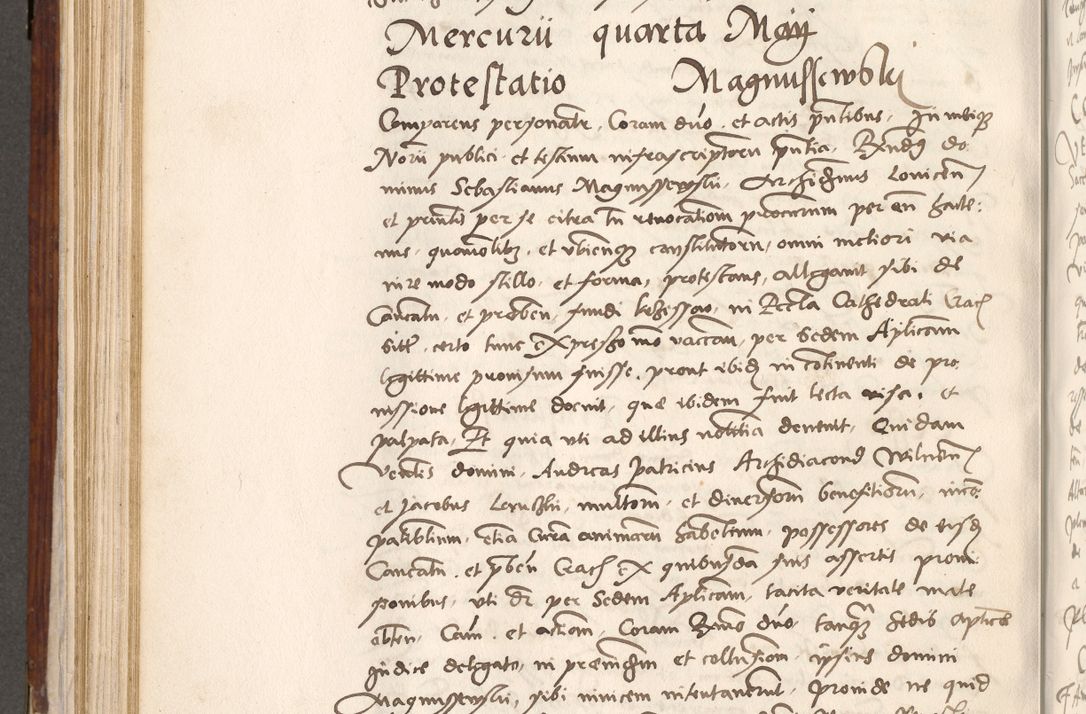 Mercurii quarta Maij
Protestatio Magnussewski
Comparens personalr, Coram dno, et actis pntibus, In mei⁊
Norii publici et testium infrascriptoru pntia, Rndus do
minus Sebastianus Magnussewski, Archidnus Lovicen
et primis per se citra tn revocationem procurum per eum hacte:
nus, quomolibz, et ubicunqz constitutoru, omni meliori via
iure modo stillo, et forma, protestans, allegavit sibi de
Canonicatu, et preben, fundi in Eccla Cathedrali Crac
Sitt, certo tunc expresso mo vacan, per Sedem Aplicam
legittime provisum fuisse, prout ibidem in continenti de pro
vissione legittime docuit, que ibidem fuit lecta visa, et
palpata, Et quia uti ad illius notitia devenit, Quidam
Venbles domini, Andreas Patricius Archidiaconus Wilnen
et Jacobus multorum, et diversorum beneficiorum, incom
patibilium, etia Cura animaru habentium, possessores de eisdem
Canonicatu, et preben Crac ex quibusdam suis assertis provi
sionibus, uti dr per Sedem Aplicam, tacita veritate male
obten, Cam, et action, Coram Rmo dno tanqz Sedis Aptice
Judice delegato, in preiudicium et collusion ipsius domini
Magnussewski, sibi invicem intentaverunt, Proinde ne quid